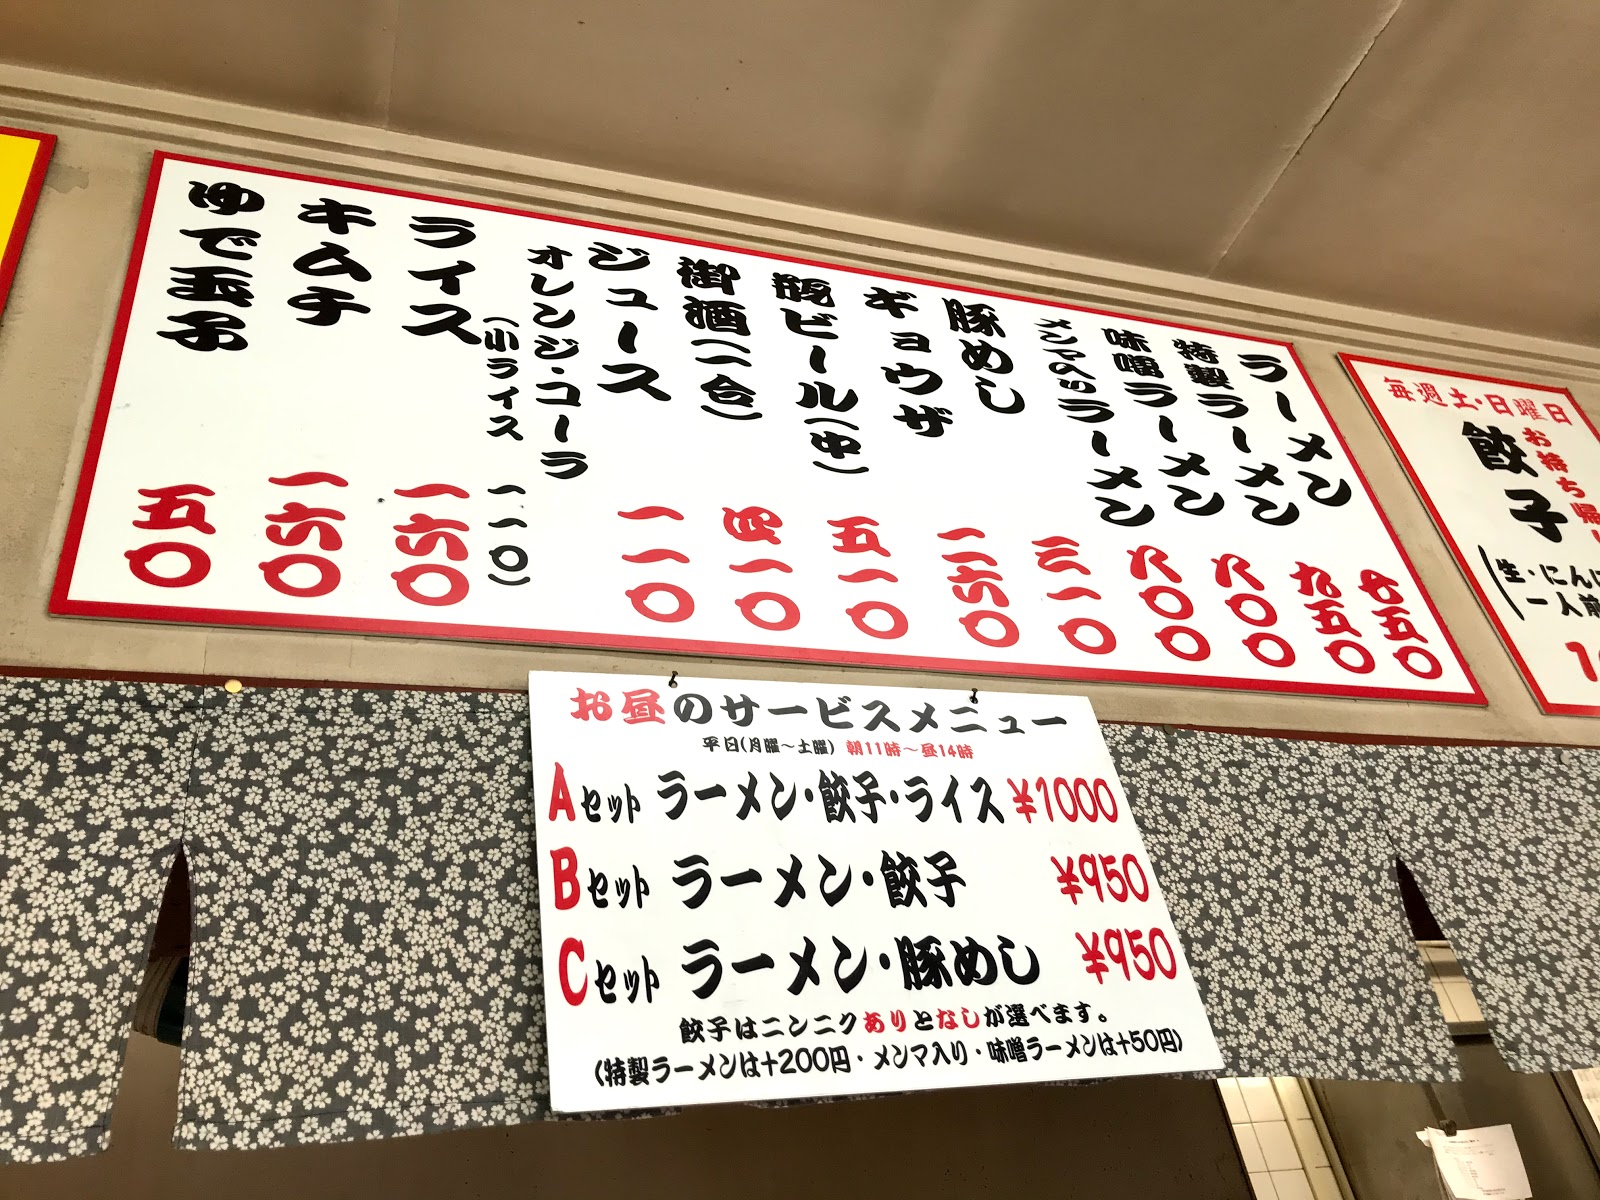 ラーメン 七五〇
特製ラーメン 九五〇
味噌ラーメン 八〇〇
メンマ入りラーメン 八〇〇
豚めし 三一〇
ギョウザ 二六〇
瓶ビール(中) 五一〇
御酒(一合) 四一〇
ジュース
オレンジ・コーラ 一一〇
ライス 一六〇
(小ライス 一一〇)
キムチ 一六〇
ゆで玉子 五〇
毎週土・日曜日
お持ち帰り
餃子
お昼のサービスメニュー
平日(月曜～土曜) 朝11時～昼14時
Aセット ラーメン・餃子・ライス ¥1000
Bセット ラーメン・餃子 ¥950
Cセット ラーメン・豚めし ¥950
餃子はニンニクありとなしが選べます。
(特製ラーメンは+200円・メンマ入り・味噌ラーメンは+50円)